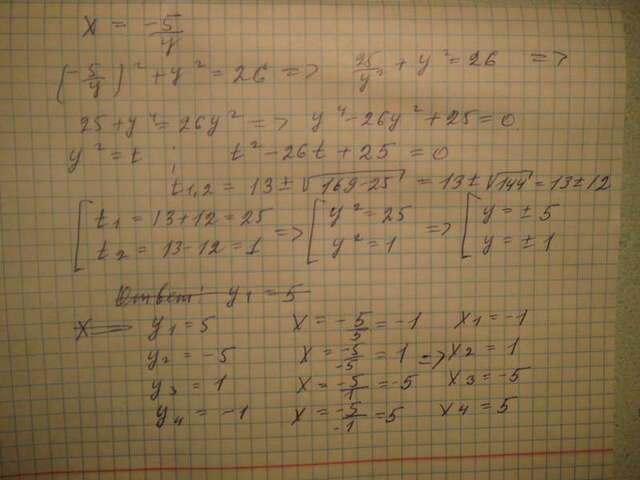 x = -5/y
(-5/y)² + y² = 26 => 25/y² + y² = 26 =>
25 + y⁴ = 26y² => y⁴ - 26y² + 25 = 0
y² = t ; t² - 26t + 25 = 0
t1,2 = 13 ± √169-25 = 13 ± √144 = 13 ± 12
[ t1 = 13+12 = 25 => [ y² = 25 => [ y = ± 5
t2 = 13-12 = 1 y² = 1 y = ± 1
Ответ: y1 = 5
x = y1 = 5 x = -5/5 = -1 x1 = -1
y2 = -5 x = -5/-5 = 1 => x2 = 1
y3 = 1 x = -5/1 = -5 x3 = -5
y4 = -1 x = -5/-1 = 5 x4 = 5